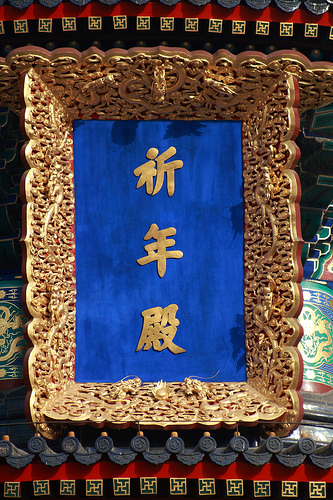 祈
年
殿